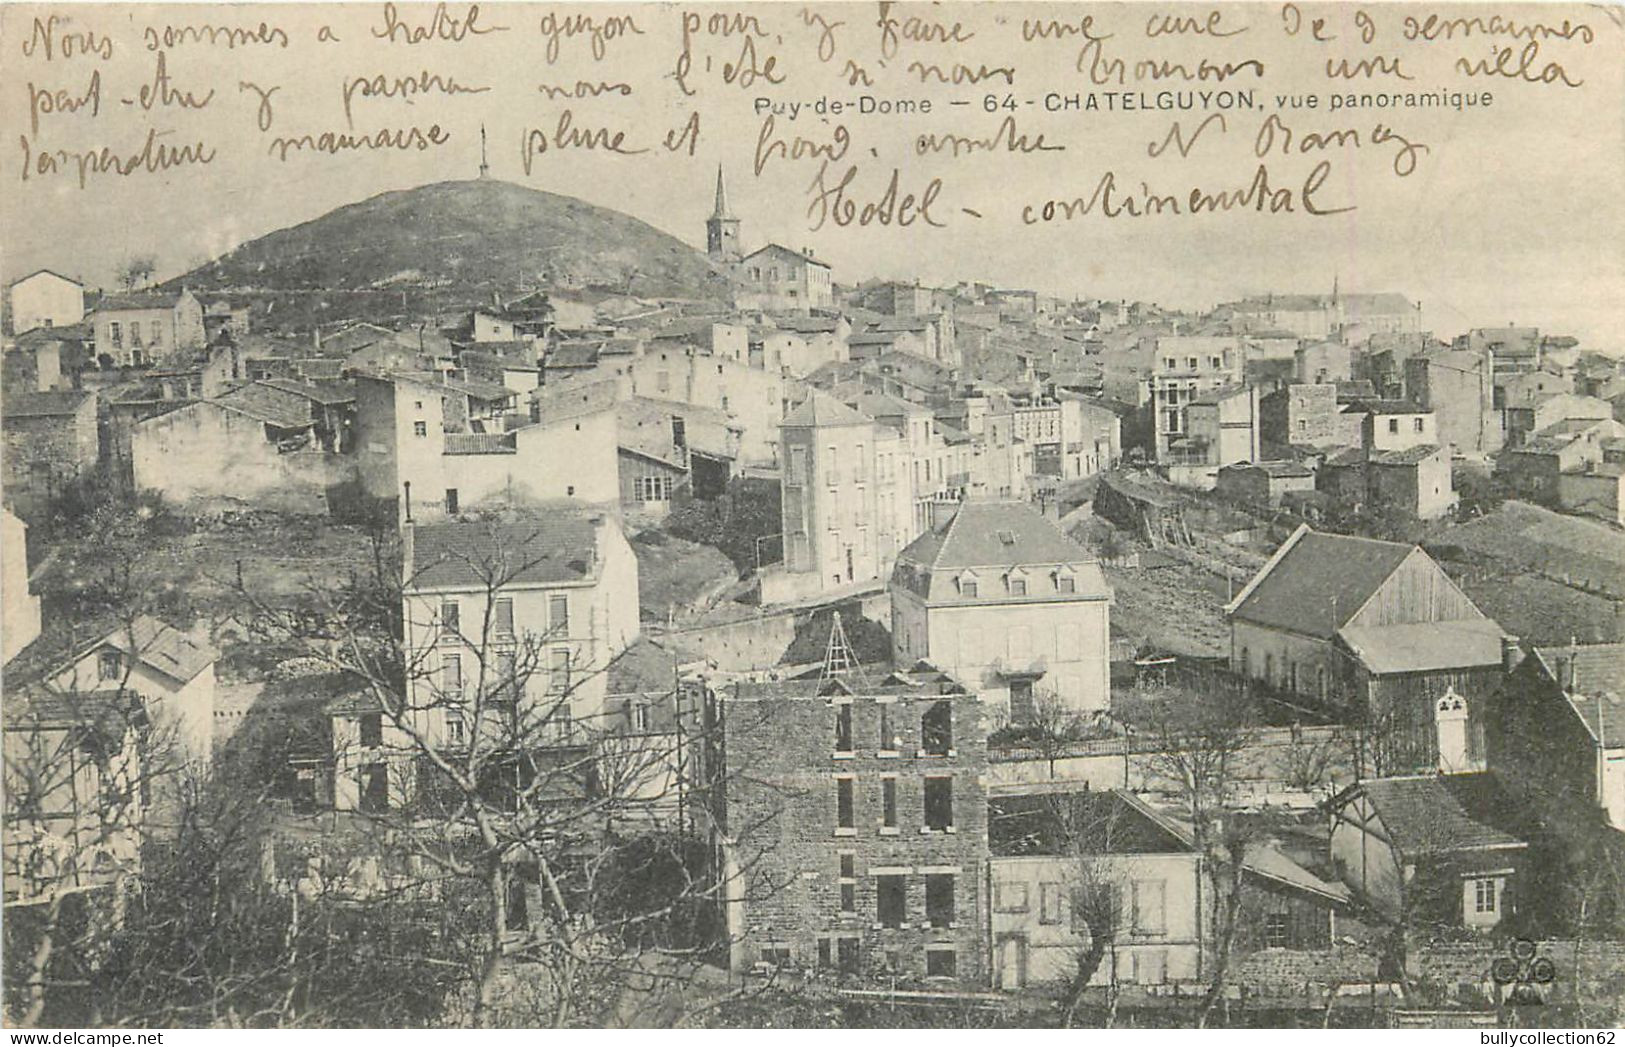 Nous sommes a chatel guyon pour y faire une cure de 3 semaines
peut-etre y passeron nous l'eté si nous trouvons une villa
Puy-de-Dome - 64 - CHATELGUYON, vue panoramique
temperature mauvaise pluie et froid. amitiés N Rancy
Hotel - continental
bullycollection62